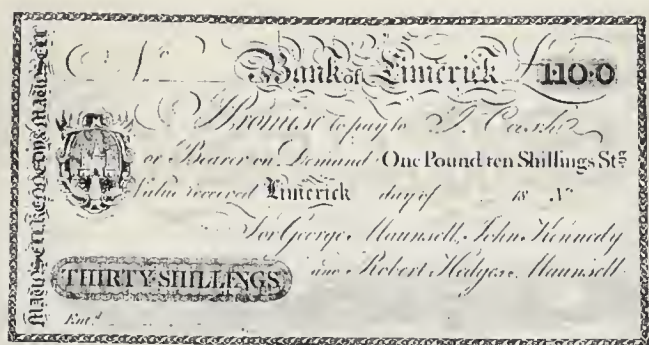 MAUNSELL KENNEDY & MAUNSELL
No
Bank of Limerick £1:10:0
I Promise to pay to J. Cash
or Bearer on Demand One Pound ten Shillings Stg
Value received Limerick day of 18 No
For George Maunsell, John Kennedy
and Robert Hedges Maunsell
THIRTY SHILLINGS
Entd